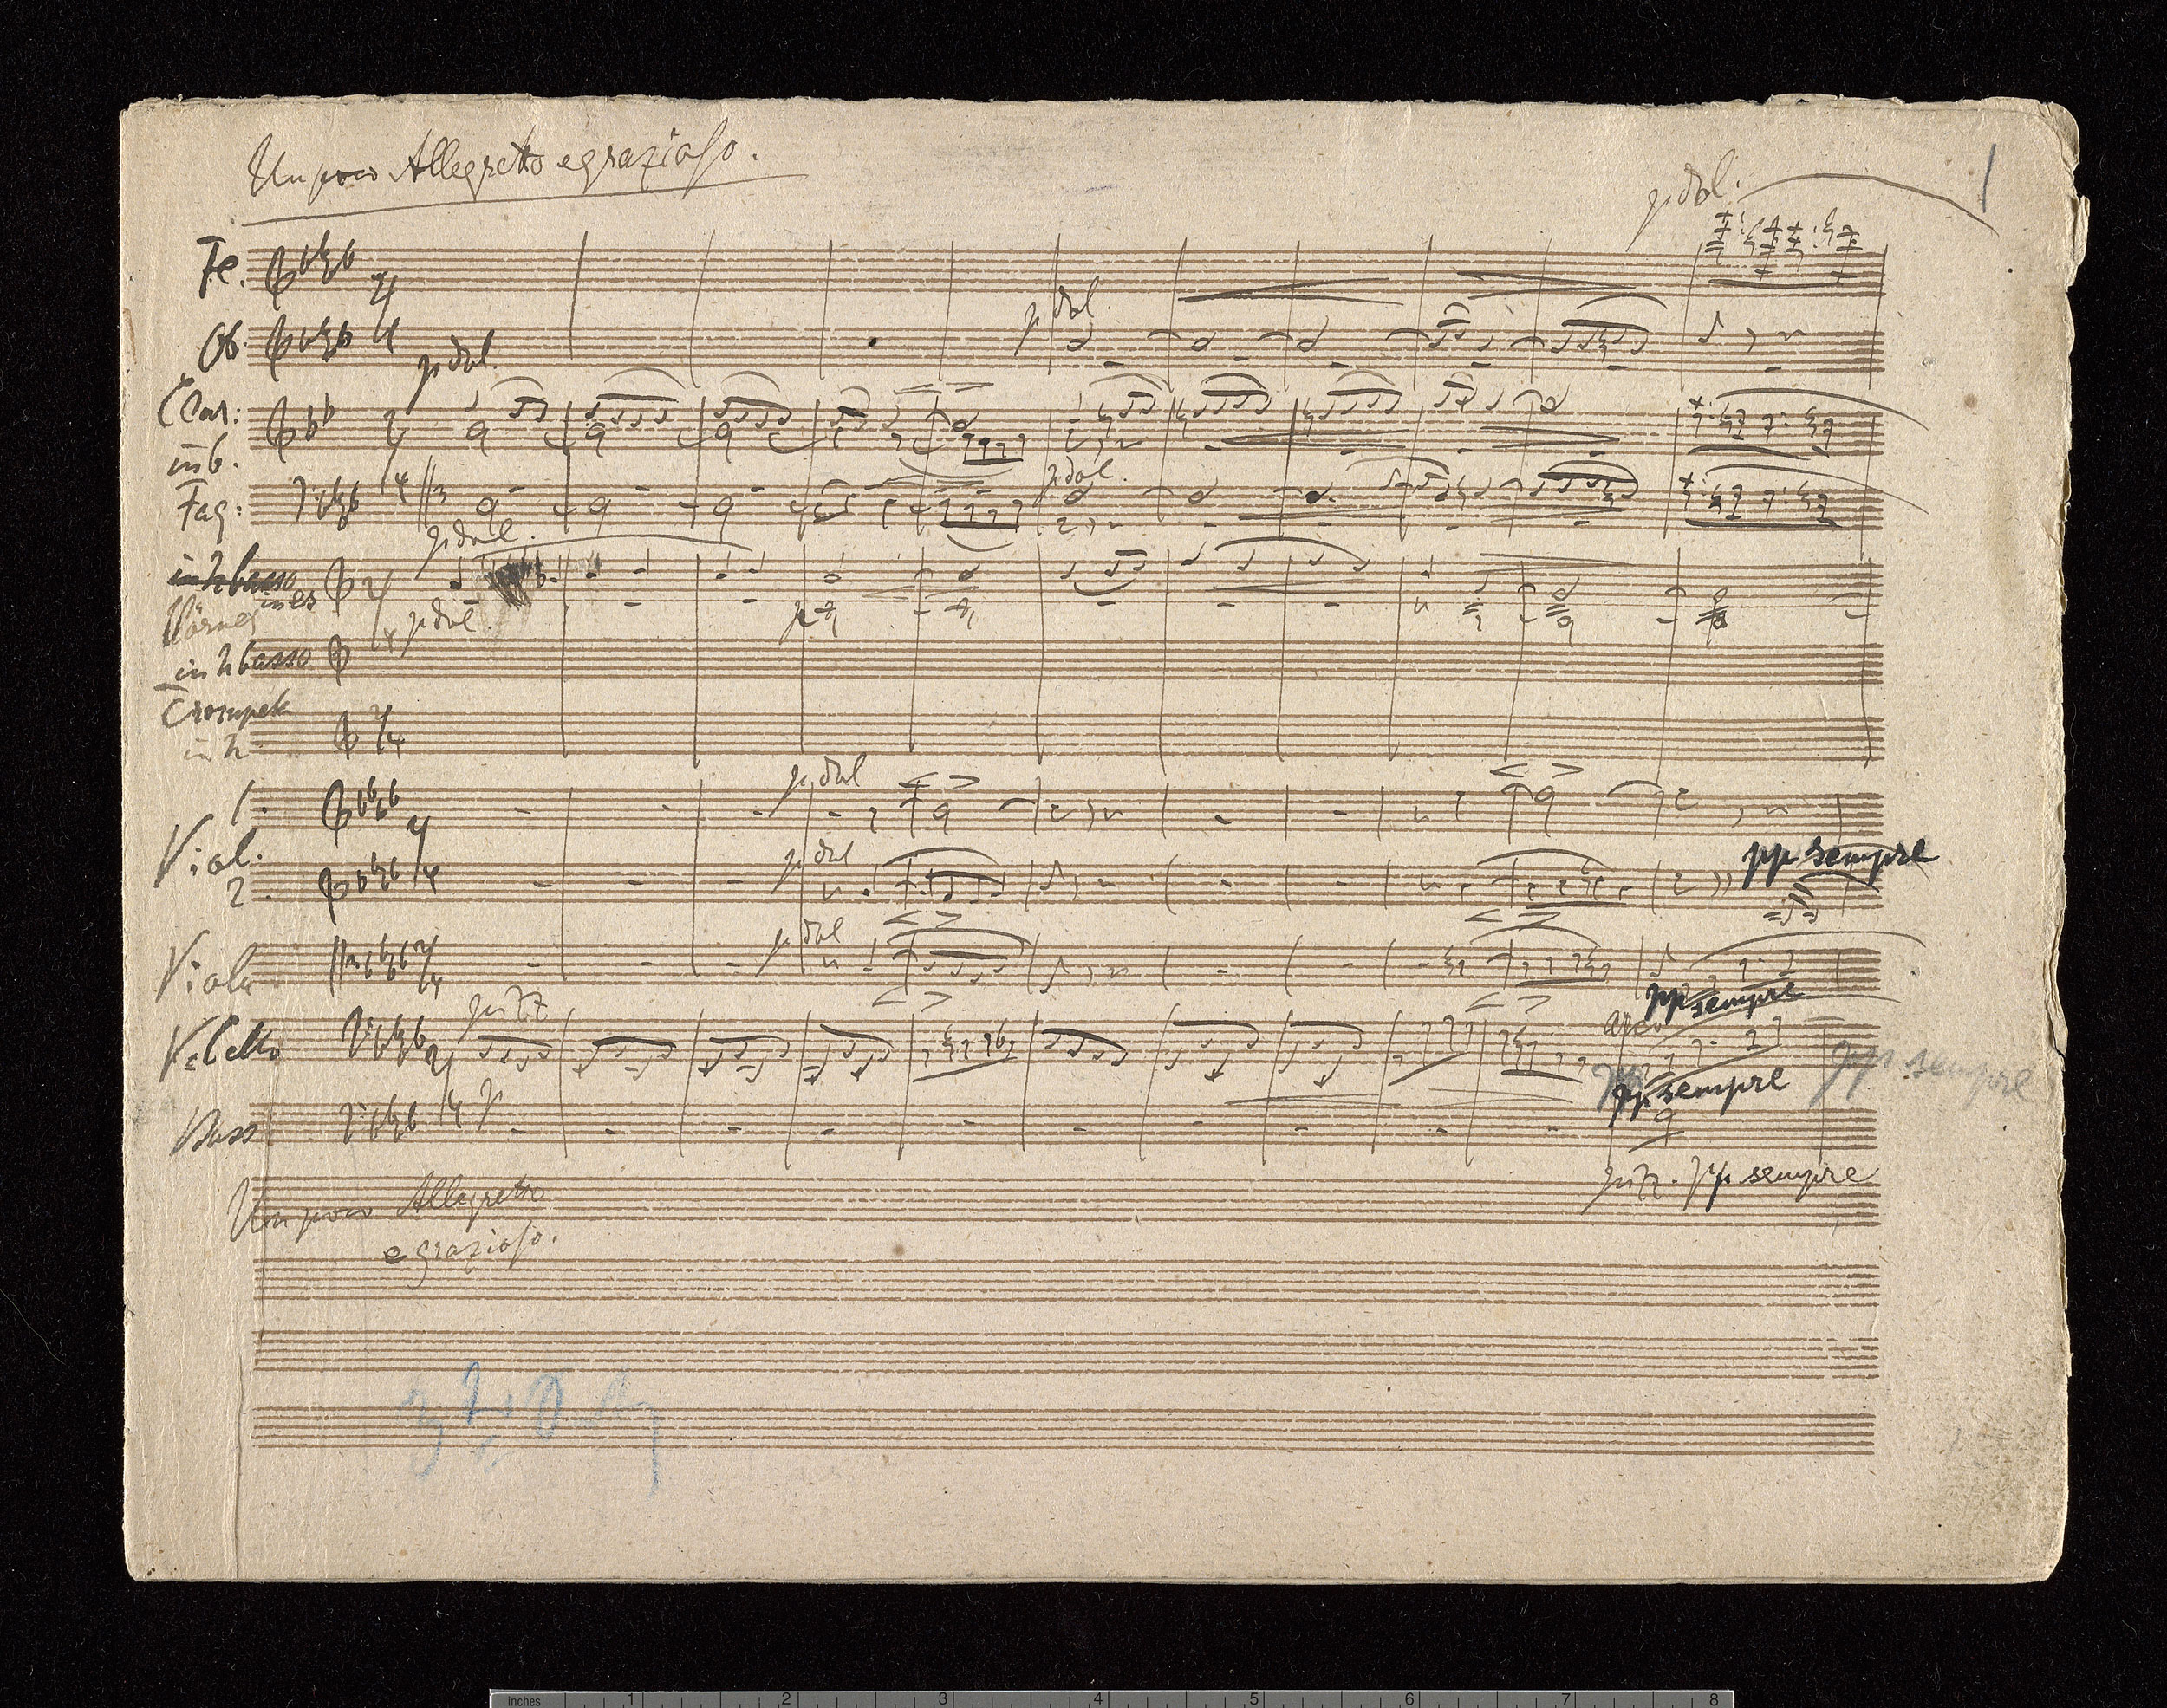 Un poco Allegretto e grazioso.
1
p dol.
Fl.
p dol
Ob.
p dol.
Clar:
in b.
p dol.
Fag:
p dol.
in h basso
in es
Hörner
p dol.
in h basso
Trompet
in h
p dol
1.
Viol.
p dol
pp sempre
2.
p dol
Viola
pp sempre
pizz
arco
V.Cello
pp sempre
pp sempre
p
Basso
pizz. pp sempre
Un poco Allegretto
e grazioso.
inches 1 2 3 4 5 6 7 8